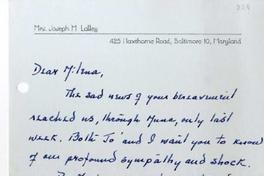 Mrs. Joseph M Lalley
425 Hawthorne Road, Baltimore 10, Maryland
Dear Milena,
The sad news of your bereavement
reached us, through Muna, only last
week. Both Jo' and I want you to know
of our profound sympathy and shock.